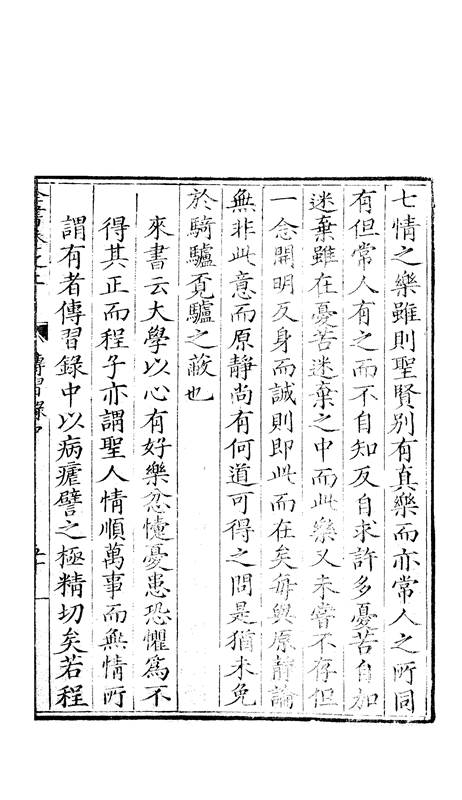 七情之樂雖則聖賢别有真樂而亦常人之所同
有但常人有之而不自知反自求許多憂苦自加
迷棄雖在憂苦迷棄之中而此樂又未嘗不存但
一念開明反身而誠則即此而在矣每與原静論
無非此意而原静尚有何道可得之問是猶未免
於騎驢覓驢之蔽也
來書云大學以心有好樂忿懥憂患恐懼爲不
得其正而程子亦謂聖人情順萬事而無情所
謂有者傳習錄中以病瘧譬之極精切矣若程
傳習錄中